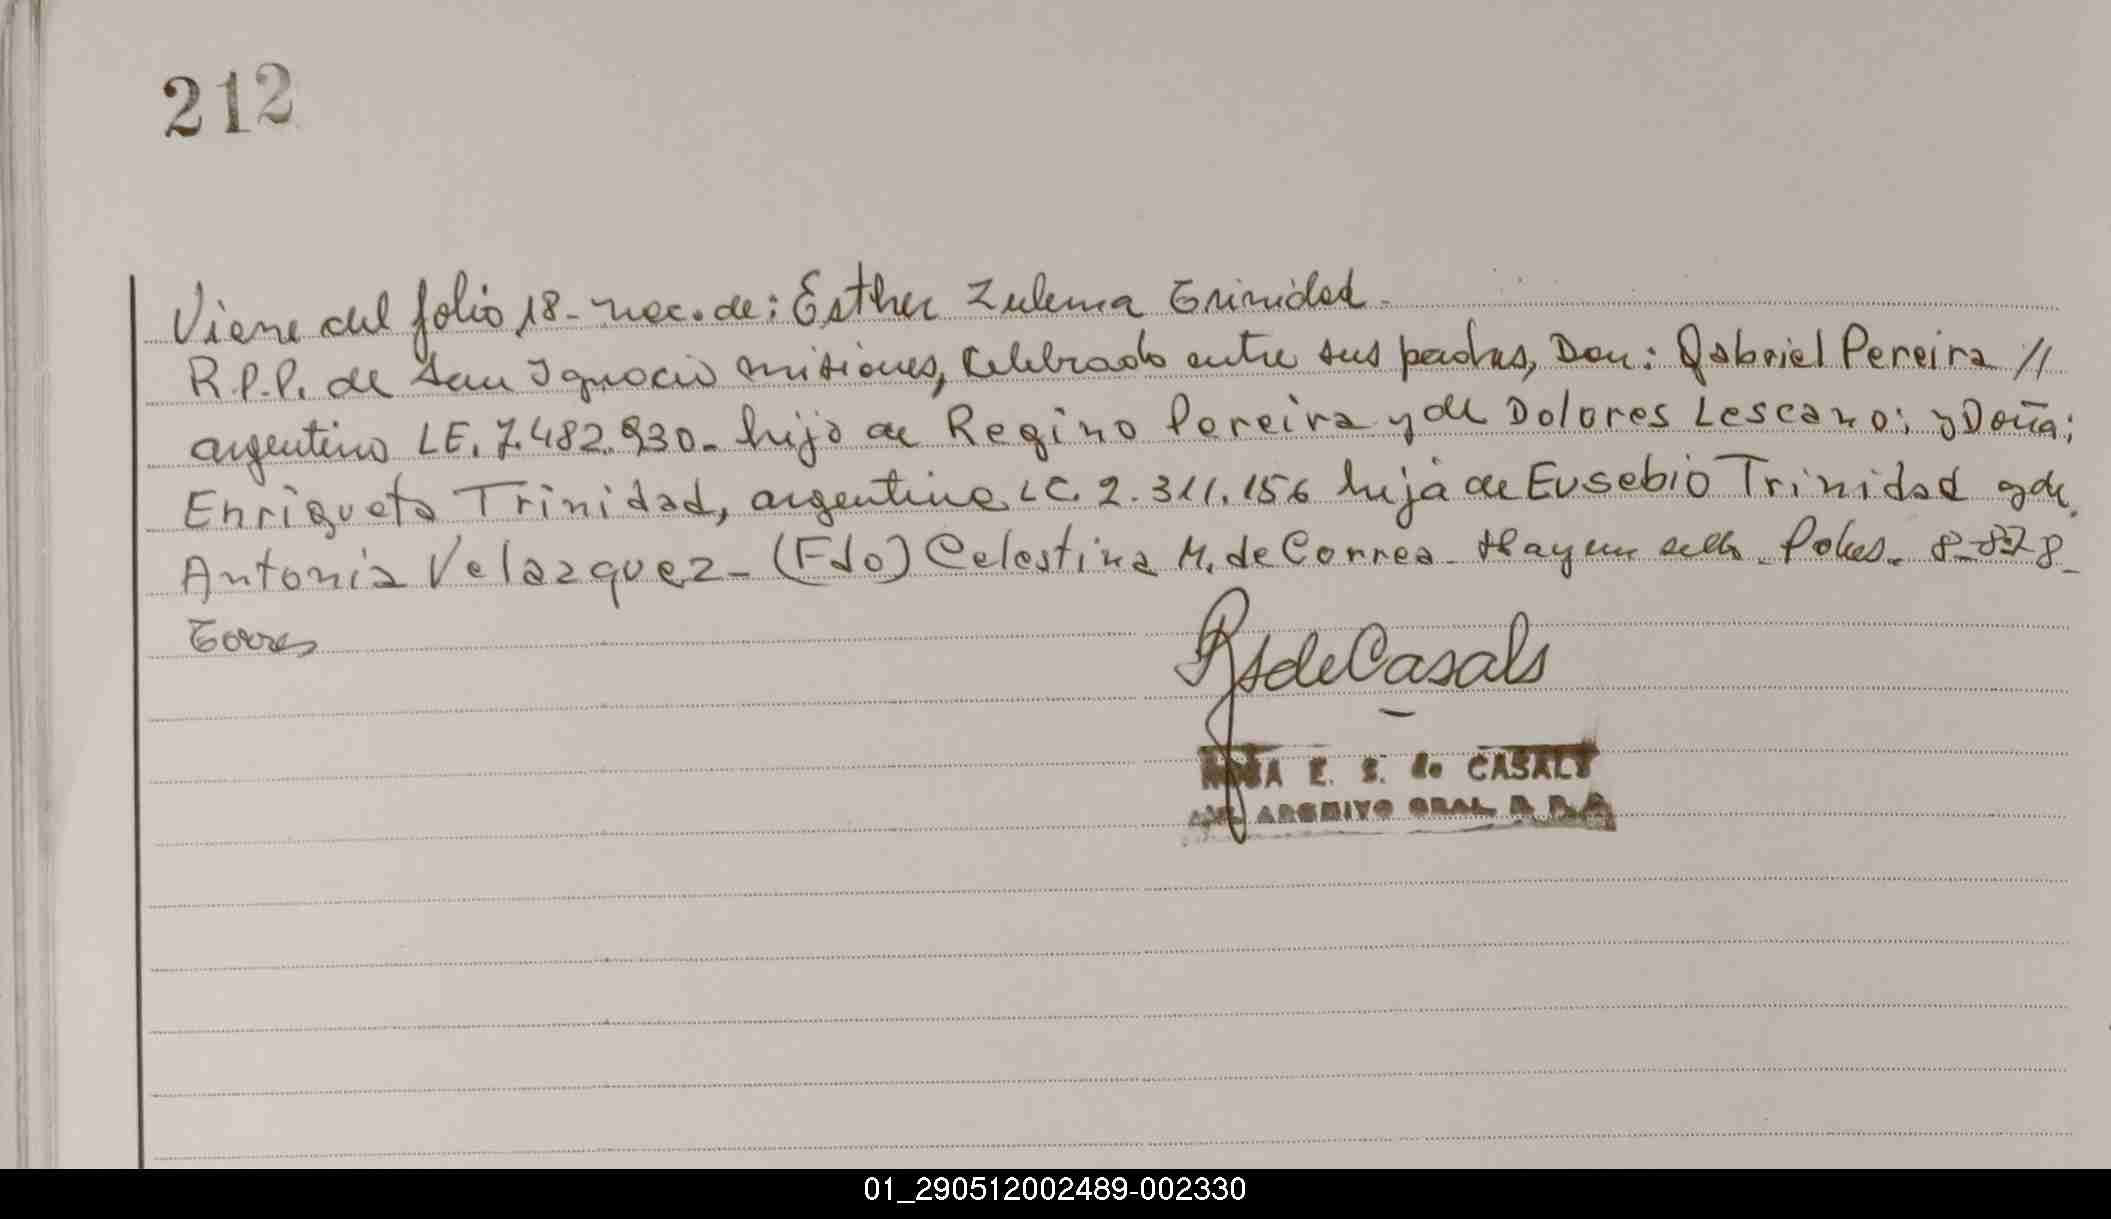 212
Viene del folio 18- nac. de: Esther Zulema Trinidad-
R.P.P. de San Ignacio Misiones, Celebrado entre sus padres, Don: Gabriel Pereira //
argentino LE. 7.482.930- hijo de Regino Pereira y de Dolores Lescano; y Doña;
Enriqueta Trinidad, argentina LC. 2.311.156 hija de Eusebio Trinidad y de
Antonia Velazquez- (Fdo) Celestina M. de Correa- Hay un sello- 8-
Torres
RS de Casals
ROSA E. S. de CASALS
ARCHIVO GRAL. R. P. P.
01_290512002489-002330